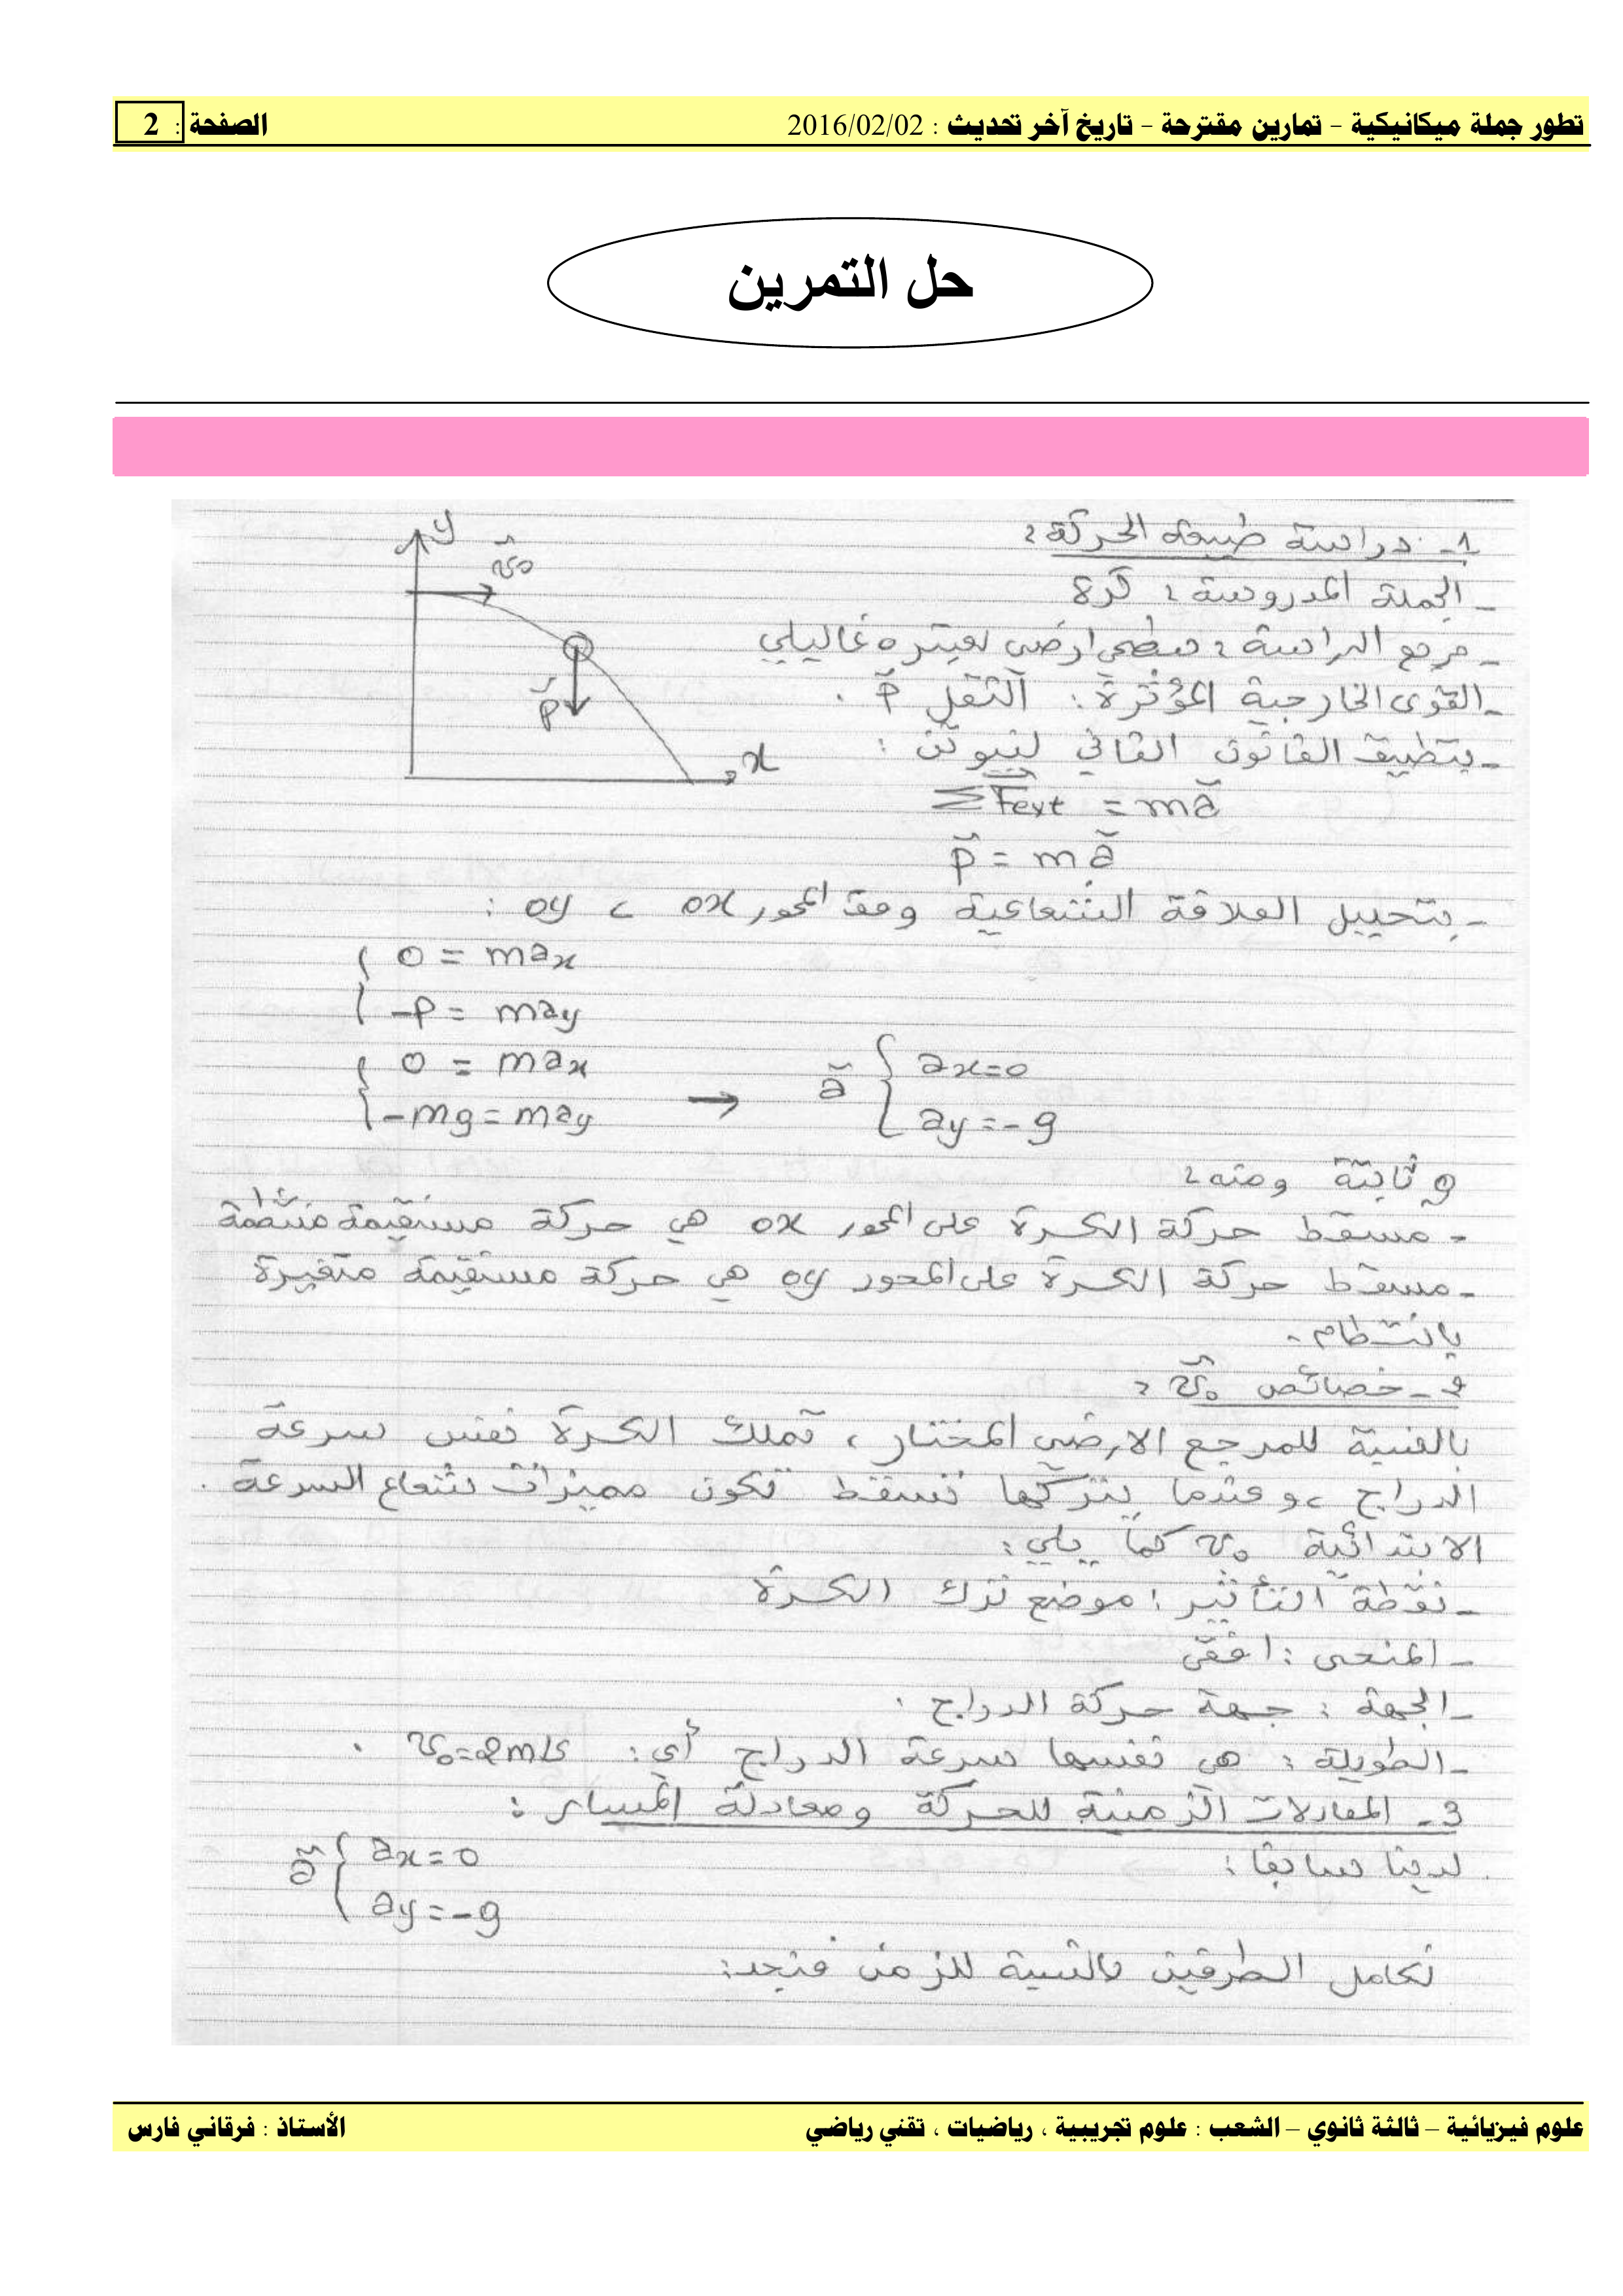 تطور جملة ميكانيكية – تمارين مقترحة – تاريخ آخر تحديث : 2016/02/02 الصفحة : 2
حل التمرين
1- دراسة طبيعة الحركة :
- الجملة المدروسة : كرة
- مرجع الدراسة : سطحي ارضي نعتبره غاليلي
- القوى الخارجية المؤثرة : الثقل P .
- بتطبيق القانون الثاني لنيوتن :
ΣFext = ma
P = ma
- بتحليل العلاقة الشعاعية وفق المحور ox ، oy :
0 = max
-P = may
0 = max
-mg = may → a { ax = 0
ay = -g
g ثابتة ومنه :
- مسقط حركة الكرة على المحور ox هي حركة مستقيمة منتظمة
- مسقط حركة الكرة على المحور oy هي حركة مستقيمة متغيرة
بانتظام .
2- خصائص v0 :
بالنسبة للمرجع الارضي المختار ، تملك الكرة نفس سرعة
الدراج ، و عندما يتركها تسقط تكون مميزات شعاع السرعة
الابتدائية v0 كما يلي :
- نقطة التأثير : موضع ترك الكرة
- المنحى : افقي
- الجهة : جهة حركة الدراج .
- الطويلة : هي نفسها سرعة الدراج أي : v0 = 2 m/s .
3- المعادلات الزمنية للحركة ومعادلة المسار :
لدينا سابقا :
a { ax = 0
ay = -g
نكامل الطرفين بالنسبة للزمن فنجد :
y
v0
P
x
علوم فيزيائية – ثالثة ثانوي – الشعب : علوم تجريبية ، رياضيات ، تقني رياضي الأستاذ : فرقاني فارس